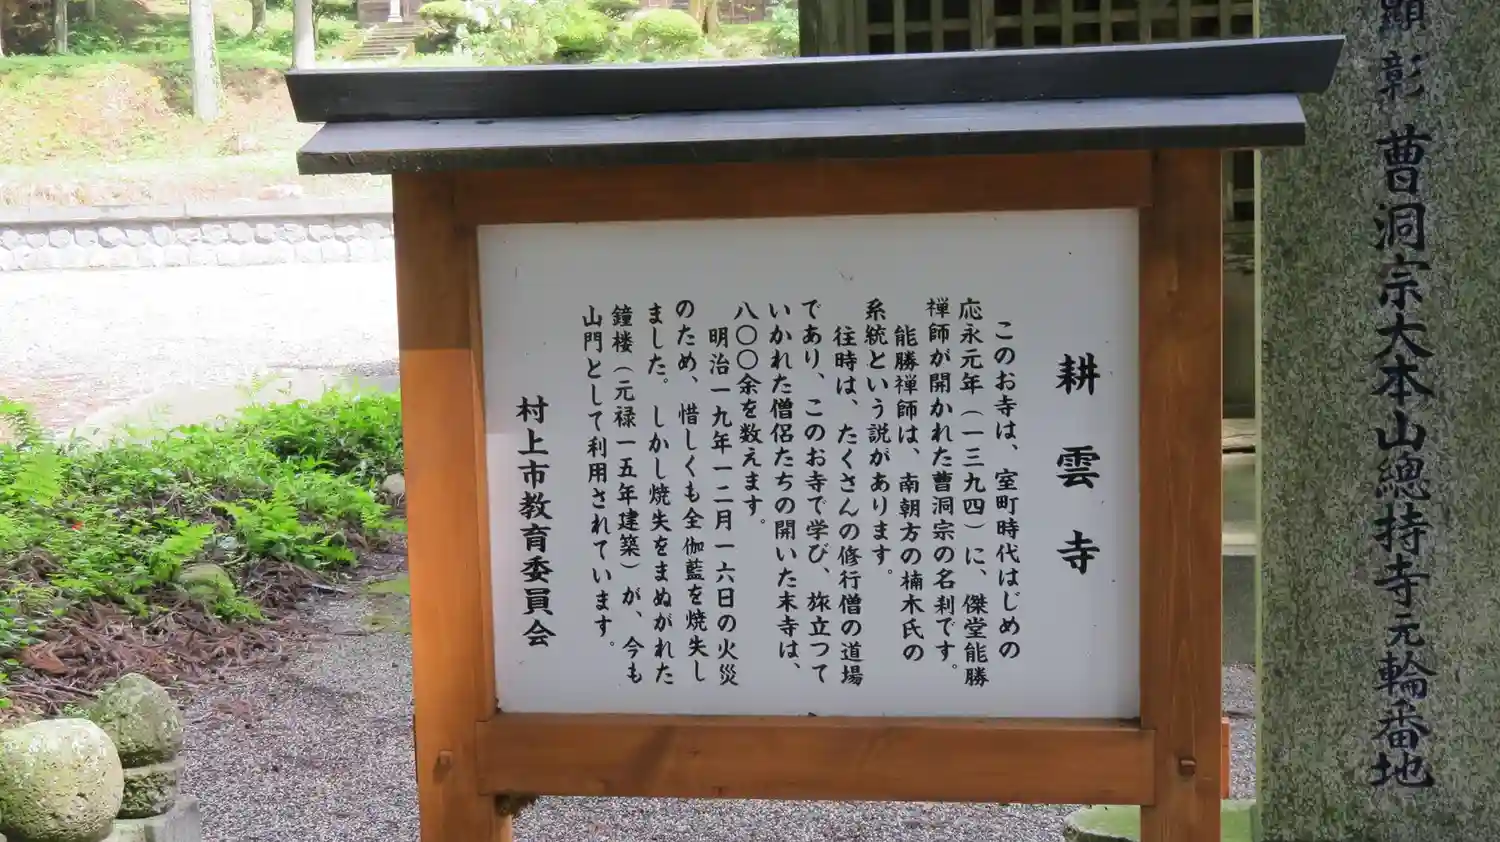 顯彰 曹洞宗大本山總持寺元輪番地
耕雲寺
このお寺は、室町時代はじめの
応永元年（一三九四）に、傑堂能勝
禅師が開かれた曹洞宗の名刹です。
能勝禅師は、南朝方の楠木氏の
系統という説があります。
往時は、たくさんの修行僧の道場
であり、このお寺で学び、旅立つて
いかれた僧侶たちの開いた末寺は、
八〇〇余を数えます。
明治一九年一二月一六日の火災
のため、惜しくも全伽藍を焼失し
ました。しかし焼失をまぬがれた
鐘楼（元禄一五年建築）が、今も
山門として利用されています。
村上市教育委員会